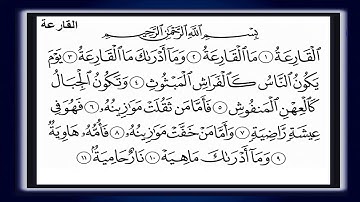 القارعة
بِسْمِ ٱللَّهِ ٱلرَّحْمَٰنِ ٱلرَّحِيمِ
ٱلْقَارِعَةُ ١ مَا ٱلْقَارِعَةُ ٢ وَمَآ أَدْرَىٰكَ مَا ٱلْقَارِعَةُ ٣ يَوْمَ
يَكُونُ ٱلنَّاسُ كَٱلْفَرَاشِ ٱلْمَبْثُوثِ ٤ وَتَكُونُ ٱلْجِبَالُ
كَٱلْعِهْنِ ٱلْمَنفُوشِ ٥ فَأَمَّا مَن ثَقُلَتْ مَوَٰزِينُهُۥ ٦ فَهُوَ فِى
عِيشَةٍ رَّاضِيَةٍ ٧ وَأَمَّا مَنْ خَفَّتْ مَوَٰزِينُهُۥ ٨ فَأُمُّهُۥ هَاوِيَةٌ
٩ وَمَآ أَدْرَىٰكَ مَا هِيَهْ ١٠ نَارٌ حَامِيَةٌۢ ١١